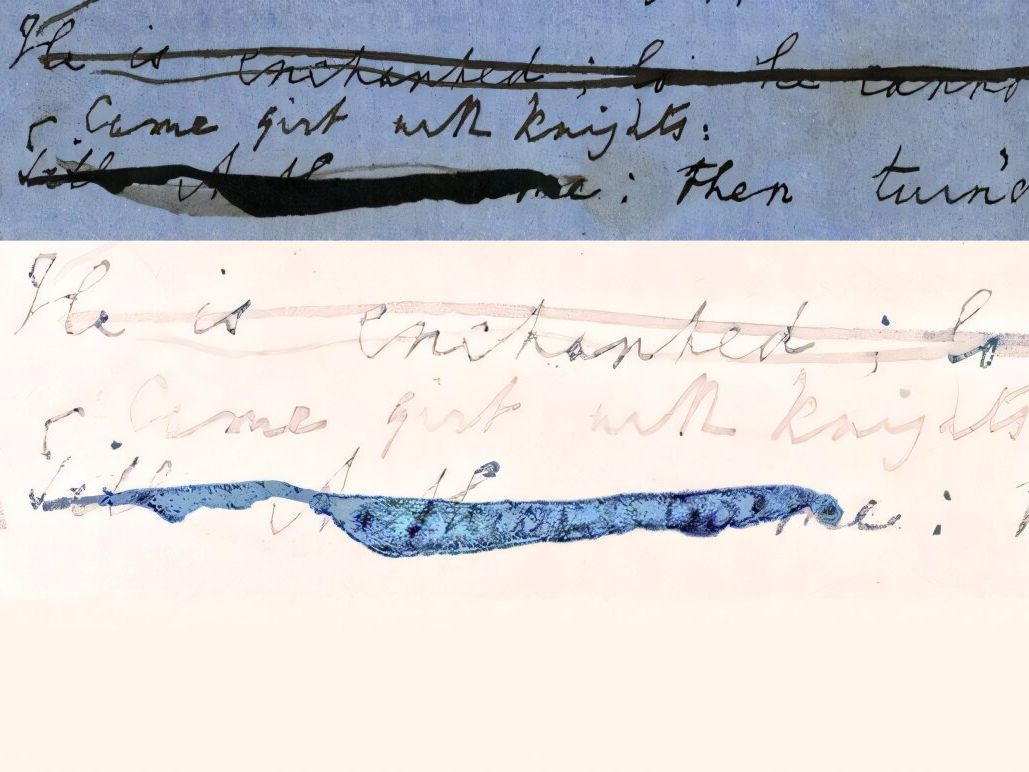 He is enchanted; lo he canno
Came girt with knights:
Till : then turn'd
He is enchanted; lo
Came girt with knights
Till :